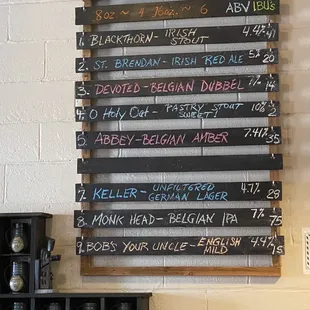 8 OZ ~ 4 16 OZ. ~ 6 ABV IBU's
1. BLACKTHORN - IRISH STOUT 4.4% 41
2. ST. BRENDAN - IRISH RED ALE 5% 20
3. DEVOTED - BELGIAN DUBBEL 7% 14
4. O HOLY OAT - "PASTRY STOUT SWEET" 10%
5. ABBEY - BELGIAN AMBER 7.4% 35
7. KELLER - UNFILTERED GERMAN LAGER 4.7% 28
8. MONK HEAD - BELGIAN IPA 7% 75
9. BOB'S YOUR UNCLE - ENGLISH MILD 4.4% 15